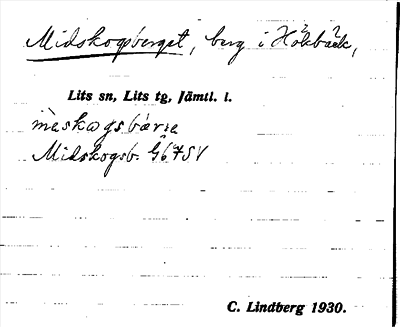 Midskogsberget, berg i Hökbäck,
Lits sn, Lits tg, Jämtl. l.
mèskagsbærjɛ
Midskogsb. G67SV
C. Lindberg 1930.